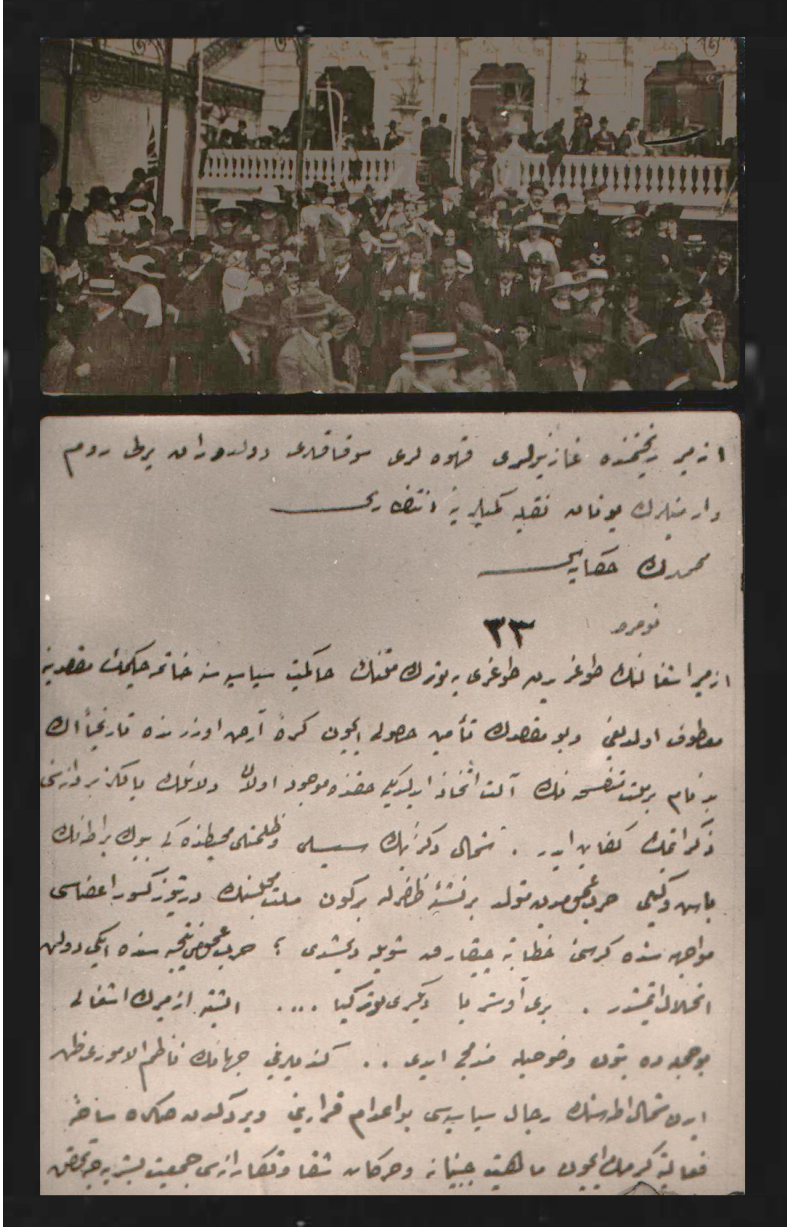 ازمیر ریختمنده غازینولری قهوه لری سوقاقلری دولدوران یرلی روم
و ارمنیلرك یونان نقلیه كمیلرینه انتظاری
محمدك حكایه سی
نومرو ٣٣
ازمیر اشغالنك طوغریدن طوغری یه تورك ملتنك حاكمیت سیاسیه سنه خاتمه چكمك مقصدینه
معطوف اولدیغی و بو مقصدك تأمین حصولی ایچون كرهٔ ارض اوزرنده تاریخاً اك
بدنام بر ملت آلت اتخاذ ایدلدیكی حقنده موجود اولان دلائلك یالكز بر دانه سنی
ذكر ایتمك كفایت ایدر . شمال دكزینك سیسلی و ظلمتلی محیطنده كی بیوك بریطانیانك
باش وكیلی حرب عمومیدن متولد بر نشئهٔ ظفرله بر كون ملت مجلسنك درتیوز كسور اعضاسی
مواجهه سنده كرسئ خطابته چیقارق شویله دیمشدی ؛ حرب عمومی نتیجه سنده ایكی دولت
انحلال ایتمشدر . بری اوستریا دیكری توركیا .... ایشته ازمیرك اشغالی
بو جمله ده بتون وضوحیله مندمج ایدی .. كندیلرینی جهانك ناظم الاموری ظن
ایدن شمال اطه سنك رجال سیاسیه سی بو اعدام قرارینی ویردكدن صكره ساحهٔ
فعالیته كیرمك ایچون ماهیت و حركات جمعیت بشریه جه